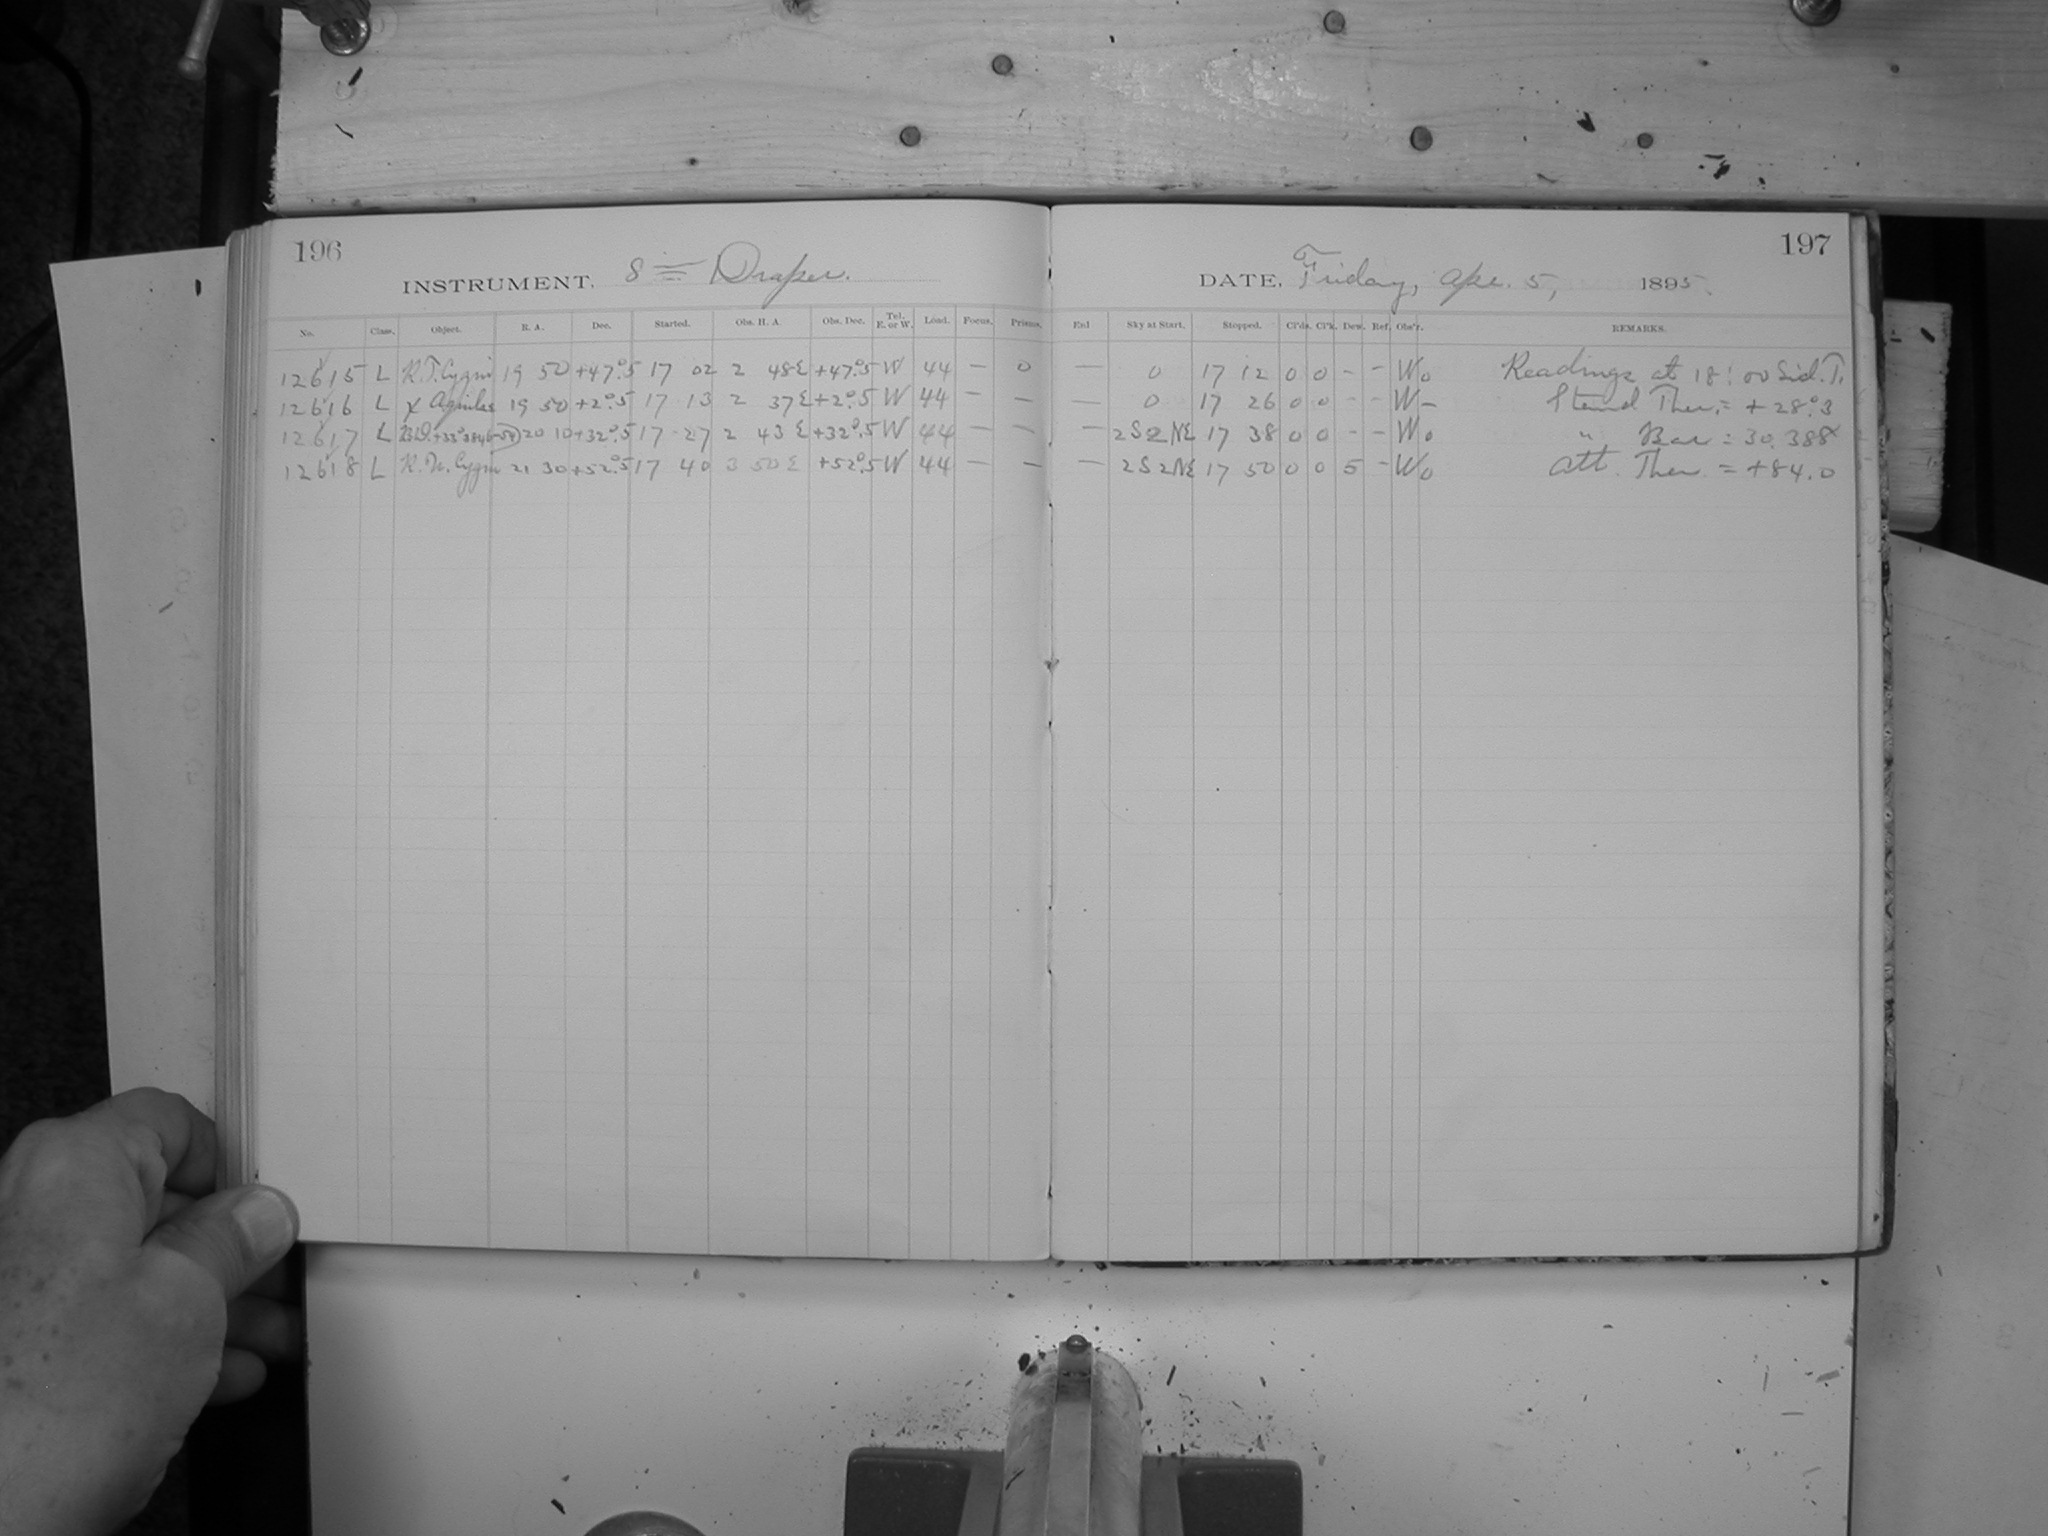 196
INSTRUMENT, 8 in Draper.
No. Class. Object. R. A. Dec. Started. Obs. H. A. Obs. Dec. Tel. E. or W. Lond. Focus. Prisms.
12615 L R.T. Cygni 19 50 +47°.5 17 02 2 48 E +47°.5 W 44 — 0
12616 L χ Aquilae 19 50 +2°.5 17 13 2 37 E +2°.5 W 44 — —
12617 L 20 10 +32°.5 17 27 2 43 E +32°.5 W 44 — —
12618 L Cygni 21 30 +52°.5 17 40 3 50 E +52°.5 W 44 — —
197
DATE, Friday, Apr. 5, 1895.
Enl Sky at Start. Stopped. Cl'ds. Cl'k. Dew. Ref. Obs'r. REMARKS.
— 0 17 12 0 0 - - Wo Readings at 18:00 Sid. T.
— 0 17 26 0 0 - - W- Stand Ther. = +28°.3
— 2S2NE 17 38 0 0 - - Wo " Bar = 30.388
— 2S2NE 17 50 0 0 5 - Wo Att. Ther. = +84.0